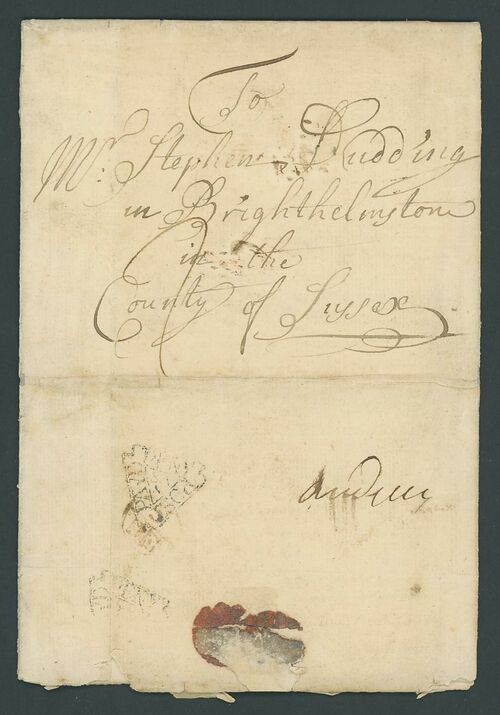 To
Mr. Stephen Pudding
in Brighthelmston
in the
County of Sussex